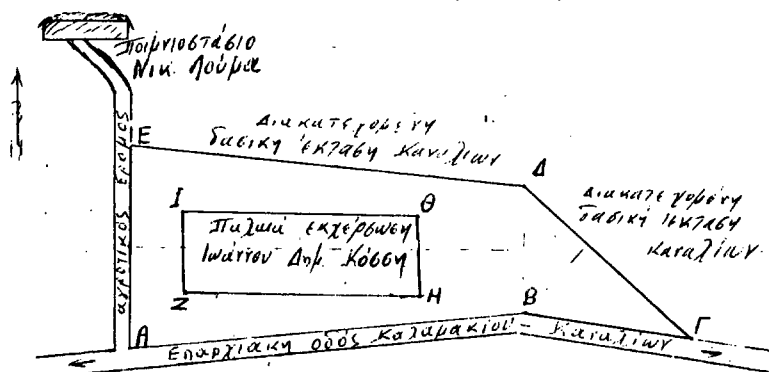 Ποιμνιοστάσιο
Νικ. Λούμα
Ε
Διακατεχομένη
δασική έκταση Καναλίων
Δ
Διακατεχομένη
δασική έκταση
Καναλίων
αγροτικός δρόμος
Ι
Θ
Παλαιά εκχέρσωση
Ιωάννου Δημ. Κόσση
Ζ
Η
Α
Β
Γ
Επαρχιακή οδός Καλαμακίου - Καναλίων